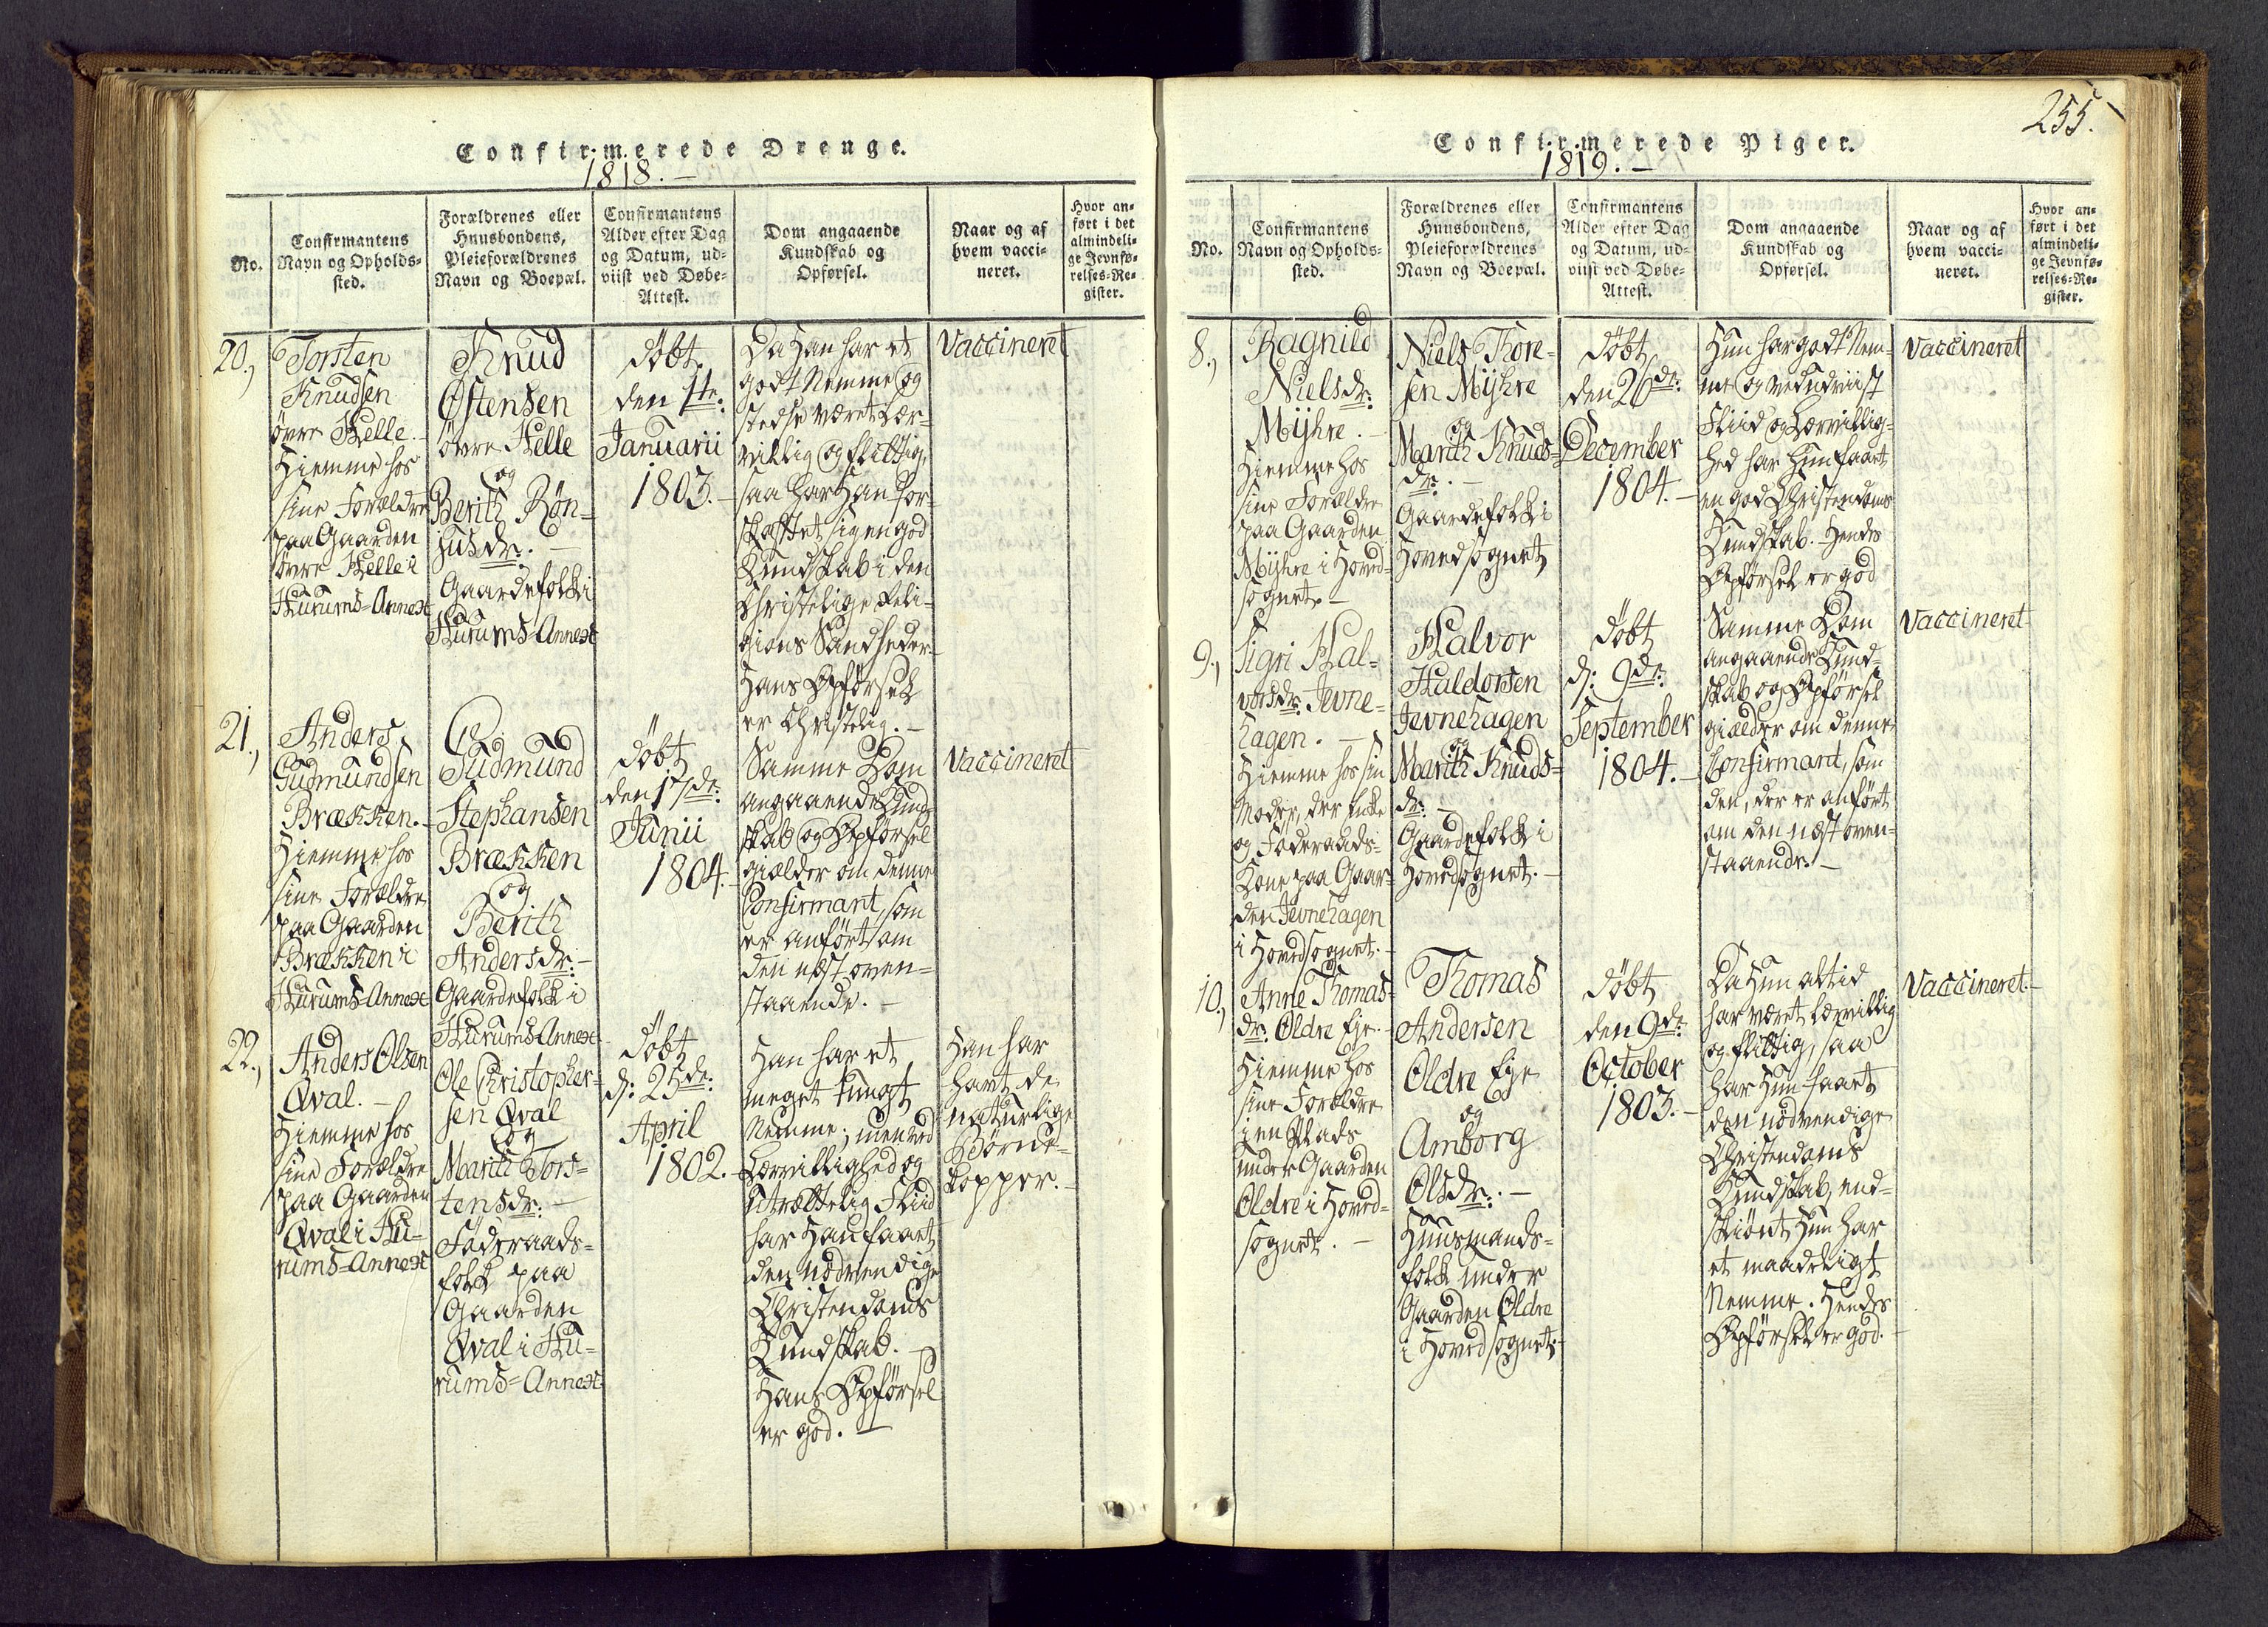 Confirmerede Drenge.
1818. –
No.
Confirmantens
Navn og Opholds-
sted.
Forældrenes eller
Huusbondens,
Pleieforældrenes
Navn og Boepæl.
Confirmantens
Alder efter Dag
og Datum, ud-
viist ved Døbe-
Attest.
Dom angaaende
Kundskab og
Opførsel.
Naar og af
hvem vacci-
neret.
Hvor an-
ført i det
almindeli-
ge Jevnfø-
relses-Re-
gister.
20.,
Torsten
Knudsen
övre Helle.
Hiemme hos
sine Forældre
paa Gaarden
övre Helle i
Hurums-Annex
Knud
Östensen
övre Helle
og
Berith Røn-
jusdr. –
Gaardefolk i
Hurums-Annex
Döbt
den 1te:
Januarii
1803. –
Da Han har et
godt Nemme og
stedse været Lær-
villig og flittig,
saa har Han for-
skaffet sig en god
Kundskab i den
Christelige Reli-
gions Sandheder.
Hans Opförsel
er Christelig. –
Vaccineret
21.,
Anders
Gudmundsen
Brækken. –
Hiemme hos
sine Forældre
paa Gaarden
Brækken i
Hurums-Annex
Gudmund
Stephansen
Brækken
og
Berith
Andersdr: –
Gaardefolk i
Hurums-Annex
Döbt
den 17de:
Junii
1804. –
Samme Dom
angaaende Kund-
skab og Opförsel
gielder om denne
Confirmant, som
er anfört om
den næst oven-
staaende. –
Vaccineret
22.,
Anders Olsen
Qval. –
Hiemme hos
sine Forældre
paa Gaarden
Qval i Hu-
rums-Annex
Ole Christopher-
sen Qval
og
Marith Tors-
tensdr: –
Föderaads-
folk paa
Gaarden
Qval i Hu-
rums-Annex
Döbt
d: 25de:
April
1802. –
Han har et
meget tungt
Nemme; men ved
Lærvillighed og
utrættelig Fliid
har Han faaet
den nödvendige
Christendoms
Kundskab. –
Hans Opförsel
er god. –
Han har
havt de
naturlige
Börne-
kopper. –
255.
Confirmerede Piger.
1819. –
No.
Confirmantens
Navn og Opholds-
sted.
Forældrenes eller
Huusbondens,
Pleieforældrenes
Navn og Boepæl.
Confirmantens
Alder efter Dag
og Datum, ud-
viist ved Døbe-
Attest.
Dom angaaende
Kundskab og
Opførsel.
Naar og af
hvem vacci-
neret.
Hvor an-
ført i det
almindeli-
ge Jevnfø-
relses-Re-
gister.
8.,
Ragnild
Nielsdr:
Mÿhre. –
Hiemme hos
sine Forældre
paa Gaarden
Mÿhre i Hoved-
sognet. –
Niels Thore-
sen Mÿhre
og
Marith Knuds-
dr: –
Gaardefolk i
Hovedsognet
Döbt
den 26de:
December
1804. –
Hun har godt Nem-
me og ved udviist
Fliid og Lærvillig-
hed har Hun faaet
en god Christendoms
Kundskab. Hendes
Opförsel er god
Vaccineret
9.,
Sigri Hal-
vorsdr: Jevne-
hagen. –
Hiemme hos sin
Moder, der Enke
og Föderaads-
Kone paa Gaar-
den Jevnehagen
i Hovedsognet. –
Halvor
Haldorsen
Jevnehagen
og
Marith Knuds-
dr: –
Gaardefolk i
Hovedsognet. –
Döbt
d: 9de:
September
1804. –
Samme Dom
angaaende Kund-
skab og Opförsel
gielder om denne
Confirmant, som
den, der er anfört
om den næst oven-
staaende. –
Vaccineret
10.,
Anne Thomas-
dr. Oldre Eje. –
Hiemme hos
sine Forældre
i en Plads
under Gaarden
Oldre i Hoved-
sognet. –
Thomas
Andersen
Oldre Eje
og
Amborg
Olsdr: –
Huusmands-
folk under
Gaarden Oldre
i Hovedsognet. –
Döbt
den 9de:
October
1803. –
Da Hun altid
har været lærvillig
og flittig, saa
har Hun faaet
den nödvendige
Christendoms
Kundskab, end-
skiönt Hun har
et maadeligt
Nemme. Hendes
Opförsel er god. –
Vaccineret. –